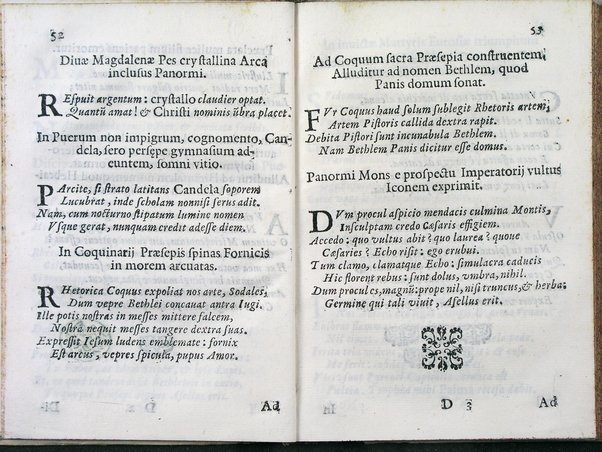 52
Diuæ Magdalenæ Pes crystallina Arca
inclusus Panormi.
REspuit argentum: crystallo claudier optat.
Quantũ amat! & Christi nominis ũbra placet.
In Puerum non impigrum, cognomento, Can-
dela, sero persepe gymnasium ad-
euntem, somni vitio.
PArcite, si strato latitans Candela soporem
Lucubrat, inde scholam nonnisi serus adit.
Nam, cum nocturno stipatum lumine nomen
Vsque gerat, nunquam credit adesse diem.
In Coquinarij Præsepis spinas Fornicis
in morem arcuatas.
RHetorica Coquus expoliat nos arte, Sodales,
Dum vepre Bethlei concauat antra Iugi.
Ille potis nostras in messes mittere falcem,
Nostra nequit messes tangere dextra suas.
Expressit Iesum ludens emblemate: fornix
Est arcus, vepres spicula, pupus Amor.
D 2 Ad
53
Ad Coquum sacra Præsepia construentem,
Alluditur ad nomen Bethlem, quod
Panis domum sonat.
FVr Coquus haud solum sublegit Rhetoris artem;
Artem Pistoris callida dextra rapit.
Debita Pistori sunt incunabula Bethlem.
Nam Bethlem Panis dicitur esse domus.
Panormi Mons e prospectu Imperatorij vultus
Iconem exprimit.
DVm procul aspicio mendacis culmina Montis,
Insculptam credo Cæsaris effigiem.
Accedo: quo vultus abit? quo laurea? quoue
Cæsaries? Echo risit: ego erubui.
Tum clamo, clamatque Echo: simulacra caducis
Hic florent rebus: sunt dolus, vmbra, nihil.
Dum procul es, magnũ: prope nil, nisi truncus, & herba:
Germine qui tali viuit, Asellus erit.
D 3 Ad